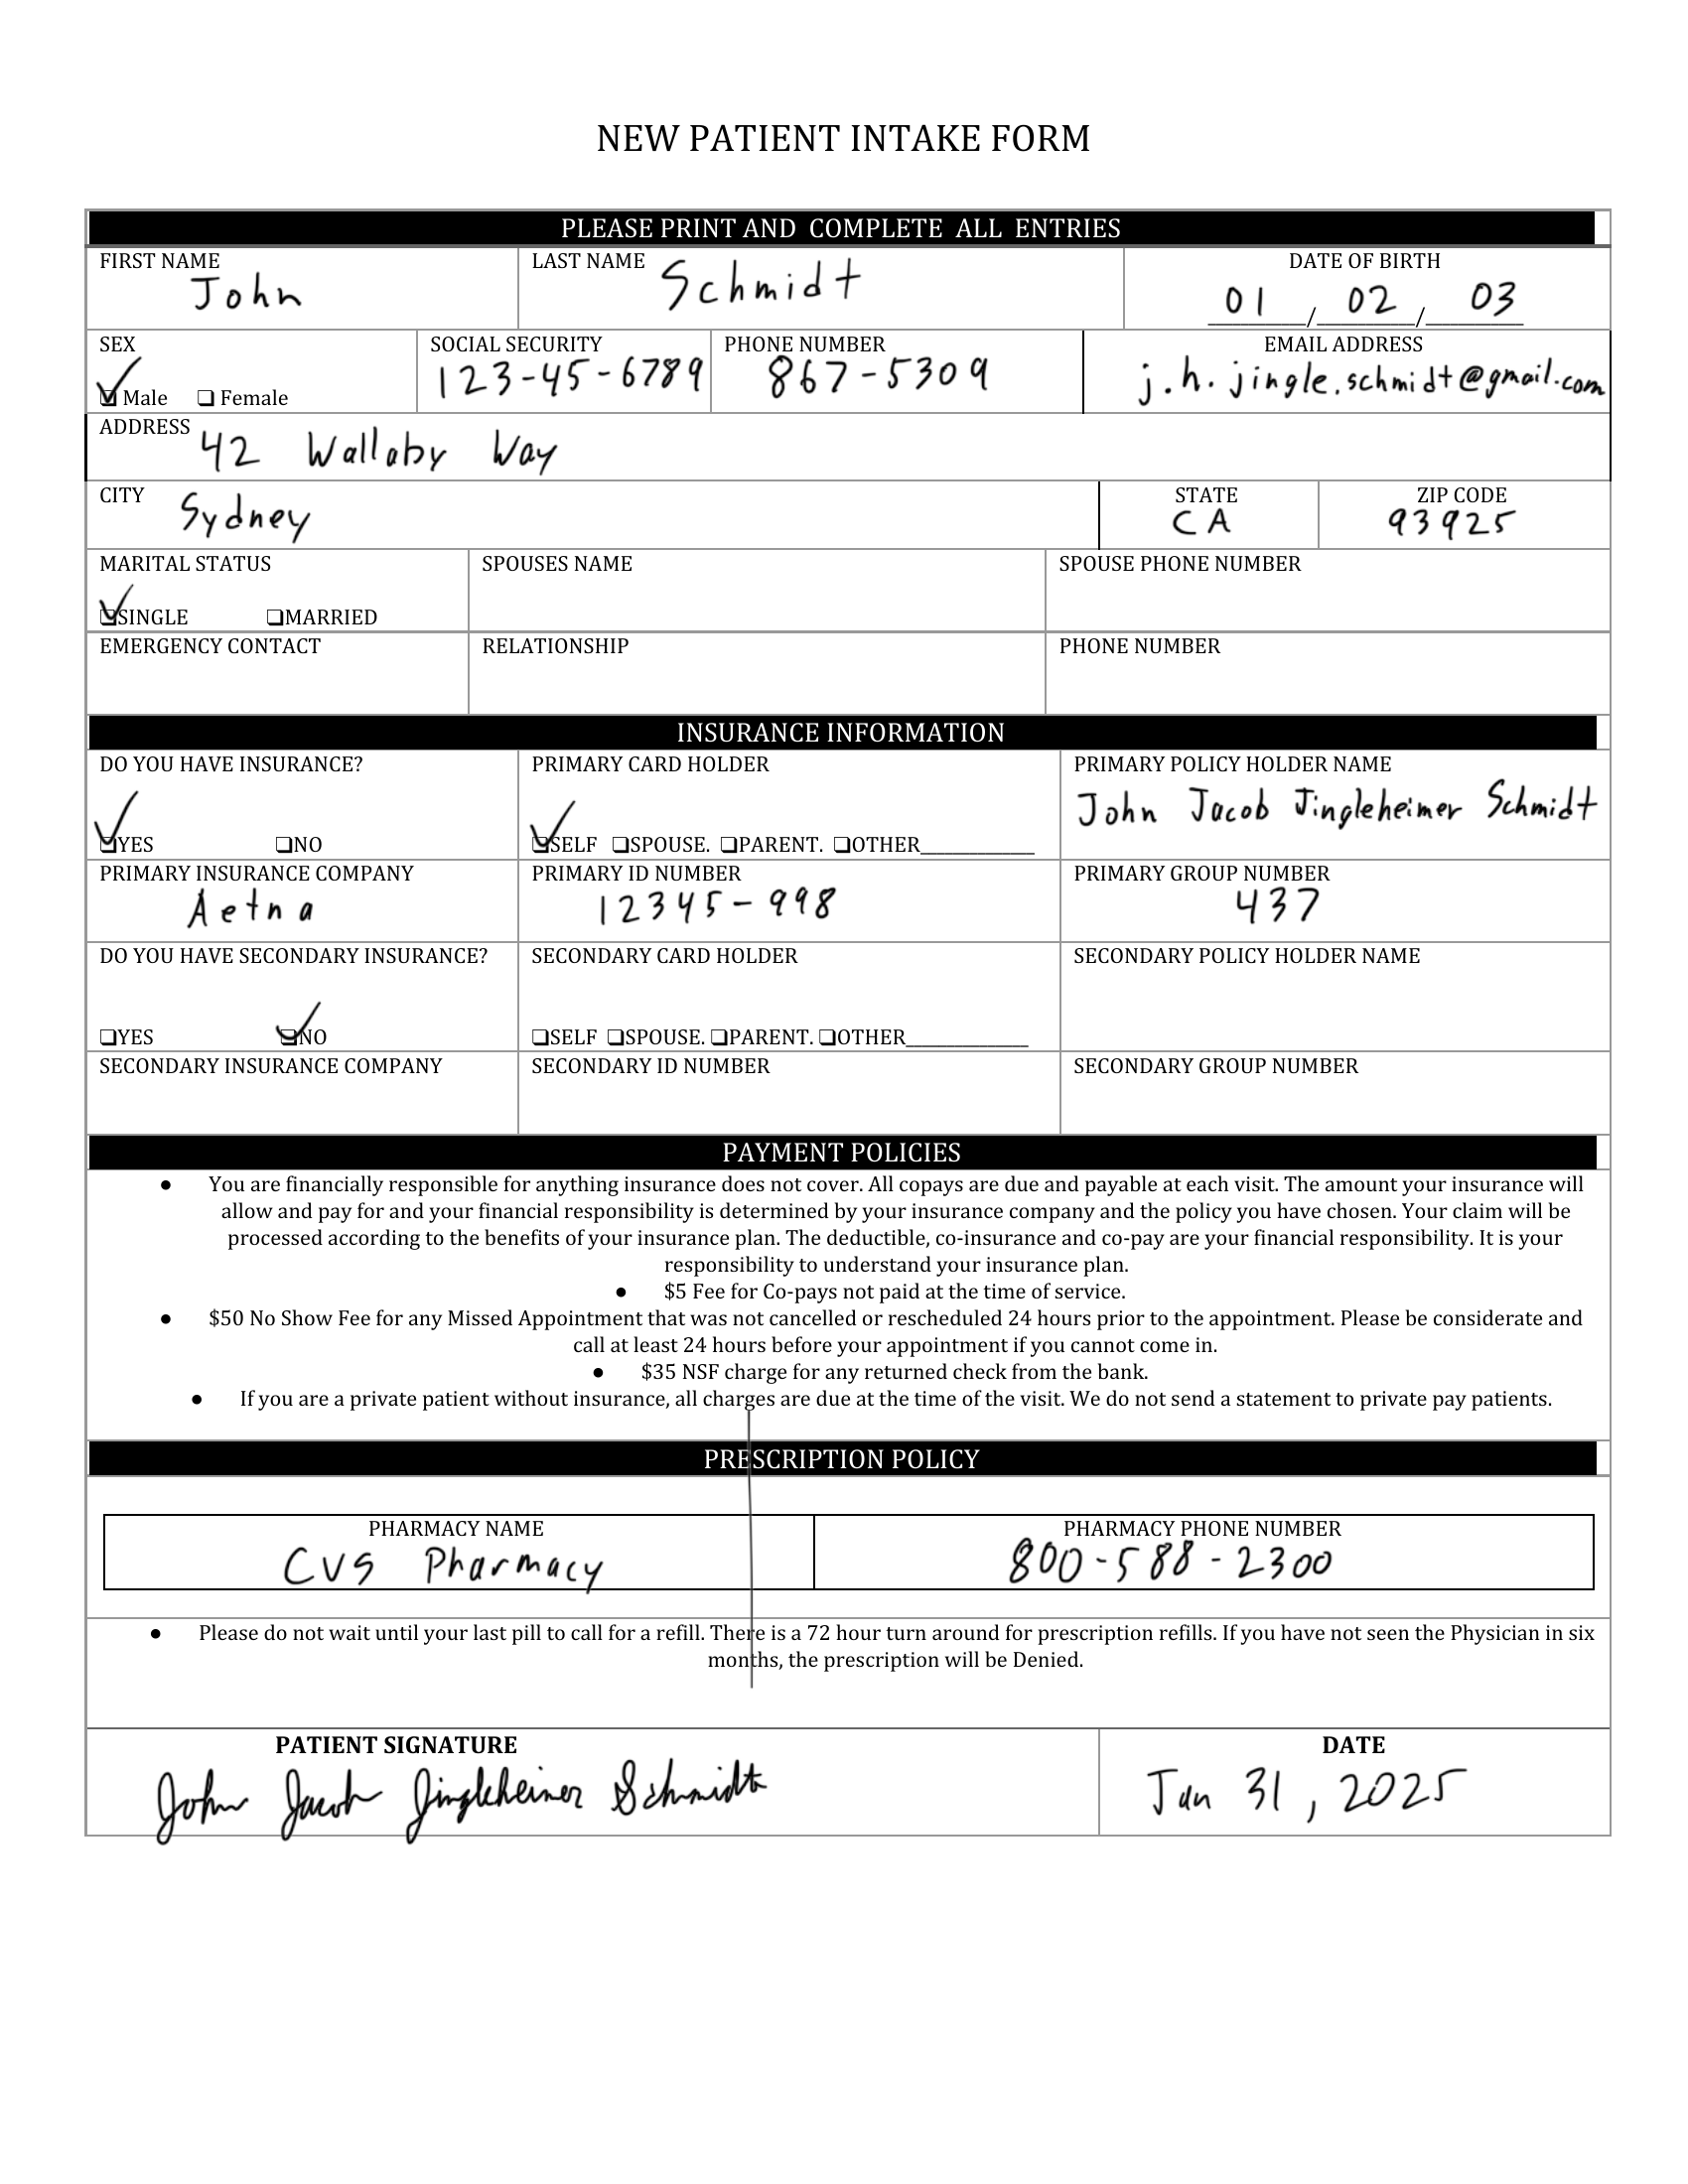 NEW PATIENT INTAKE FORM
PLEASE PRINT AND COMPLETE ALL ENTRIES
FIRST NAME LAST NAME DATE OF BIRTH
John Schmidt 01 / 02 / 03
SEX SOCIAL SECURITY PHONE NUMBER EMAIL ADDRESS
123-45-6789 867-5309 j.h.jingle.schmidt@gmail.com
Male Female
ADDRESS 42 Wallaby Way
CITY Sydney STATE ZIP CODE
CA 93925
MARITAL STATUS SPOUSES NAME SPOUSE PHONE NUMBER
SINGLE MARRIED
EMERGENCY CONTACT RELATIONSHIP PHONE NUMBER
INSURANCE INFORMATION
DO YOU HAVE INSURANCE? PRIMARY CARD HOLDER PRIMARY POLICY HOLDER NAME
John Jacob Jingleheimer Schmidt
YES NO SELF SPOUSE. PARENT. OTHER______________
PRIMARY INSURANCE COMPANY PRIMARY ID NUMBER PRIMARY GROUP NUMBER
Aetna 12345-998 437
DO YOU HAVE SECONDARY INSURANCE? SECONDARY CARD HOLDER SECONDARY POLICY HOLDER NAME
YES NO SELF SPOUSE. PARENT. OTHER_______________
SECONDARY INSURANCE COMPANY SECONDARY ID NUMBER SECONDARY GROUP NUMBER
PAYMENT POLICIES
● You are financially responsible for anything insurance does not cover. All copays are due and payable at each visit. The amount your insurance will
allow and pay for and your financial responsibility is determined by your insurance company and the policy you have chosen. Your claim will be
processed according to the benefits of your insurance plan. The deductible, co-insurance and co-pay are your financial responsibility. It is your
responsibility to understand your insurance plan.
● $5 Fee for Co-pays not paid at the time of service.
● $50 No Show Fee for any Missed Appointment that was not cancelled or rescheduled 24 hours prior to the appointment. Please be considerate and
call at least 24 hours before your appointment if you cannot come in.
● $35 NSF charge for any returned check from the bank.
● If you are a private patient without insurance, all charges are due at the time of the visit. We do not send a statement to private pay patients.
PRESCRIPTION POLICY
PHARMACY NAME PHARMACY PHONE NUMBER
CVS Pharmacy 800-588-2300
● Please do not wait until your last pill to call for a refill. There is a 72 hour turn around for prescription refills. If you have not seen the Physician in six
months, the prescription will be Denied.
PATIENT SIGNATURE DATE
John Jacob Jingleheimer Schmidt Jan 31, 2025